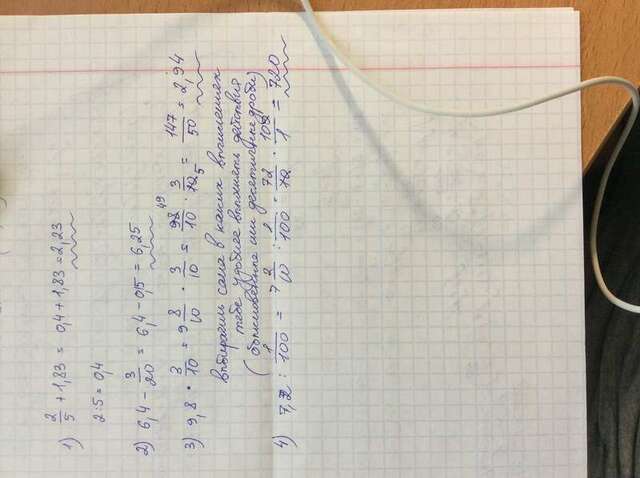 1) 2/5 + 1,83 = 0,4 + 1,83 = 2,23
2:5 = 0,4
2) 6,4 - 3/20 = 6,4 - 0,15 = 6,25
3) 9,8 · 3/10 = 9 8/10 · 3/10 = 98/10 49 · 3/10 5 = 147/50 = 2,94
выбираешь сама в каких вычислениях
тебе удобнее выполнять действия
(обыкновенные или десятичные дроби)
4) 7,2 : 1/100 = 7 2/10 : 1/100 = 72/10 · 100/1 = 720